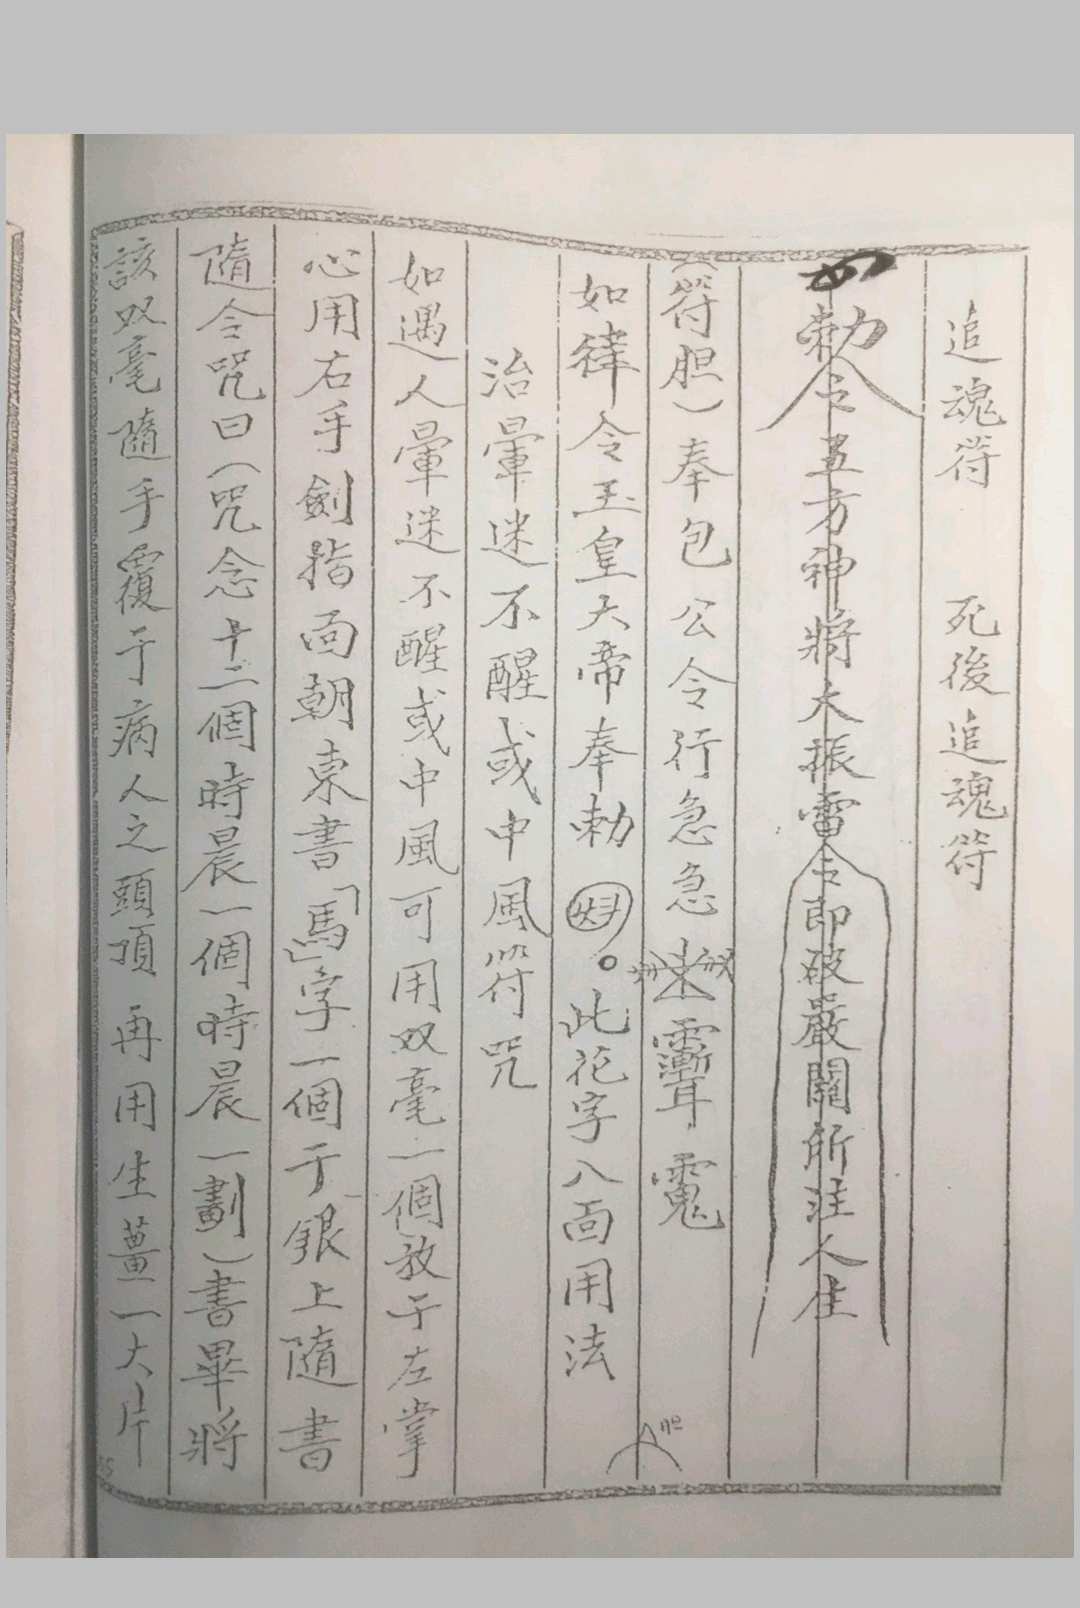 追魂符　死後追魂符
勅令五方神將大振雷令即破嚴關所注人生
(符胆)奉包公令行急急
如律令玉皇大帝奉勅。此花字八面用法
胆
治暈迷不醒或中風符咒
如遇人暈迷不醒或中風可用双毫一個放于左掌
心用右手劍指面朝東書「馬」字一個于銀上隨書
隨令咒曰(咒念十二個時晨一個時晨一劃)書畢將
該双毫隨手覆于病人之頭項再用生薑一大片